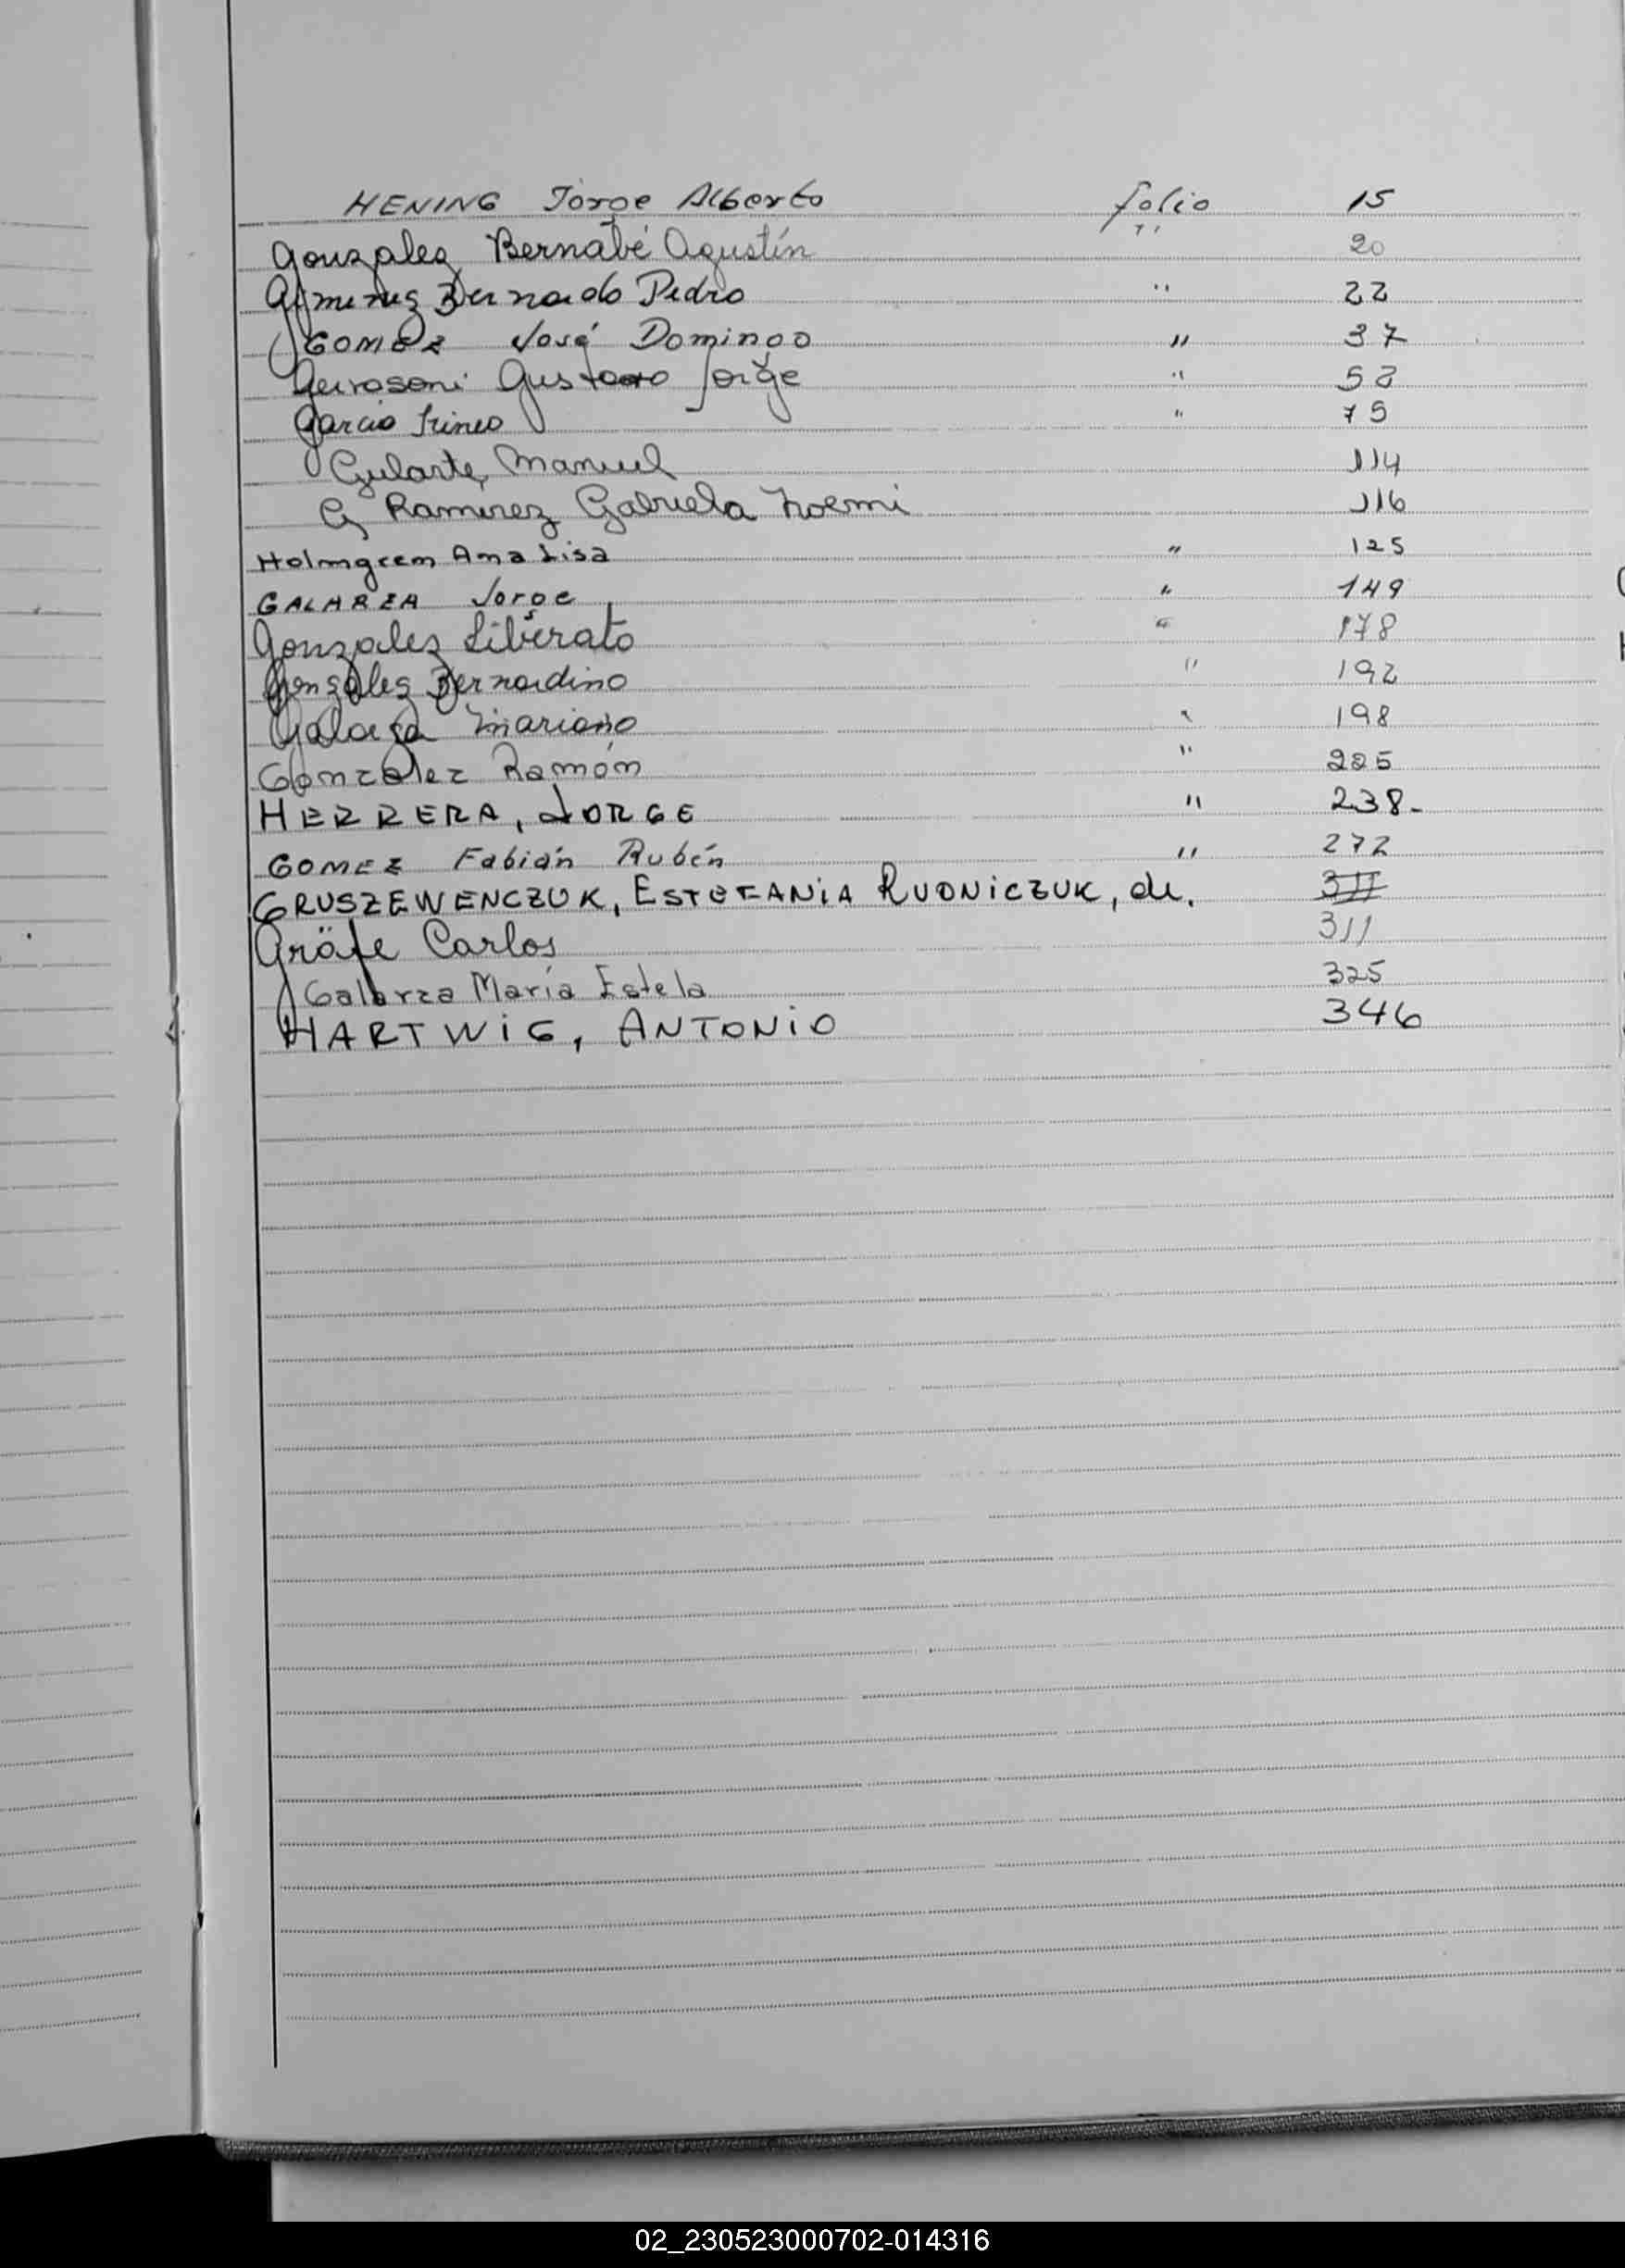 HENING Jorge Alberto folio 15
Gonzalez Bernabé Agustín " 20
Gimenez Bernardo Pedro " 22
GOMEZ José Domingo " 37
Gerosoni Gustavo Jorge " 52
Garcia Irineo " 75
Gularte, Manuel 114
G Ramirez Gabriela Noemi 116
Holmgrem Ana Lisa " 125
GALARZA Jorge " 149
Gonzalez Liberato " 178
Gonzalez Bernardino " 192
Galarza Mariano " 198
Gonzalez Ramón " 225
HERRERA, JORGE " 238-
GOMEZ Fabián Rubén " 272
GRUSZEWENCZUK, ESTEFANIA RUDNICZUK, de. 311
Gräfe Carlos 311
Galarza María Estela 325
HARTWIG, ANTONIO 346
02_230523000702-014316